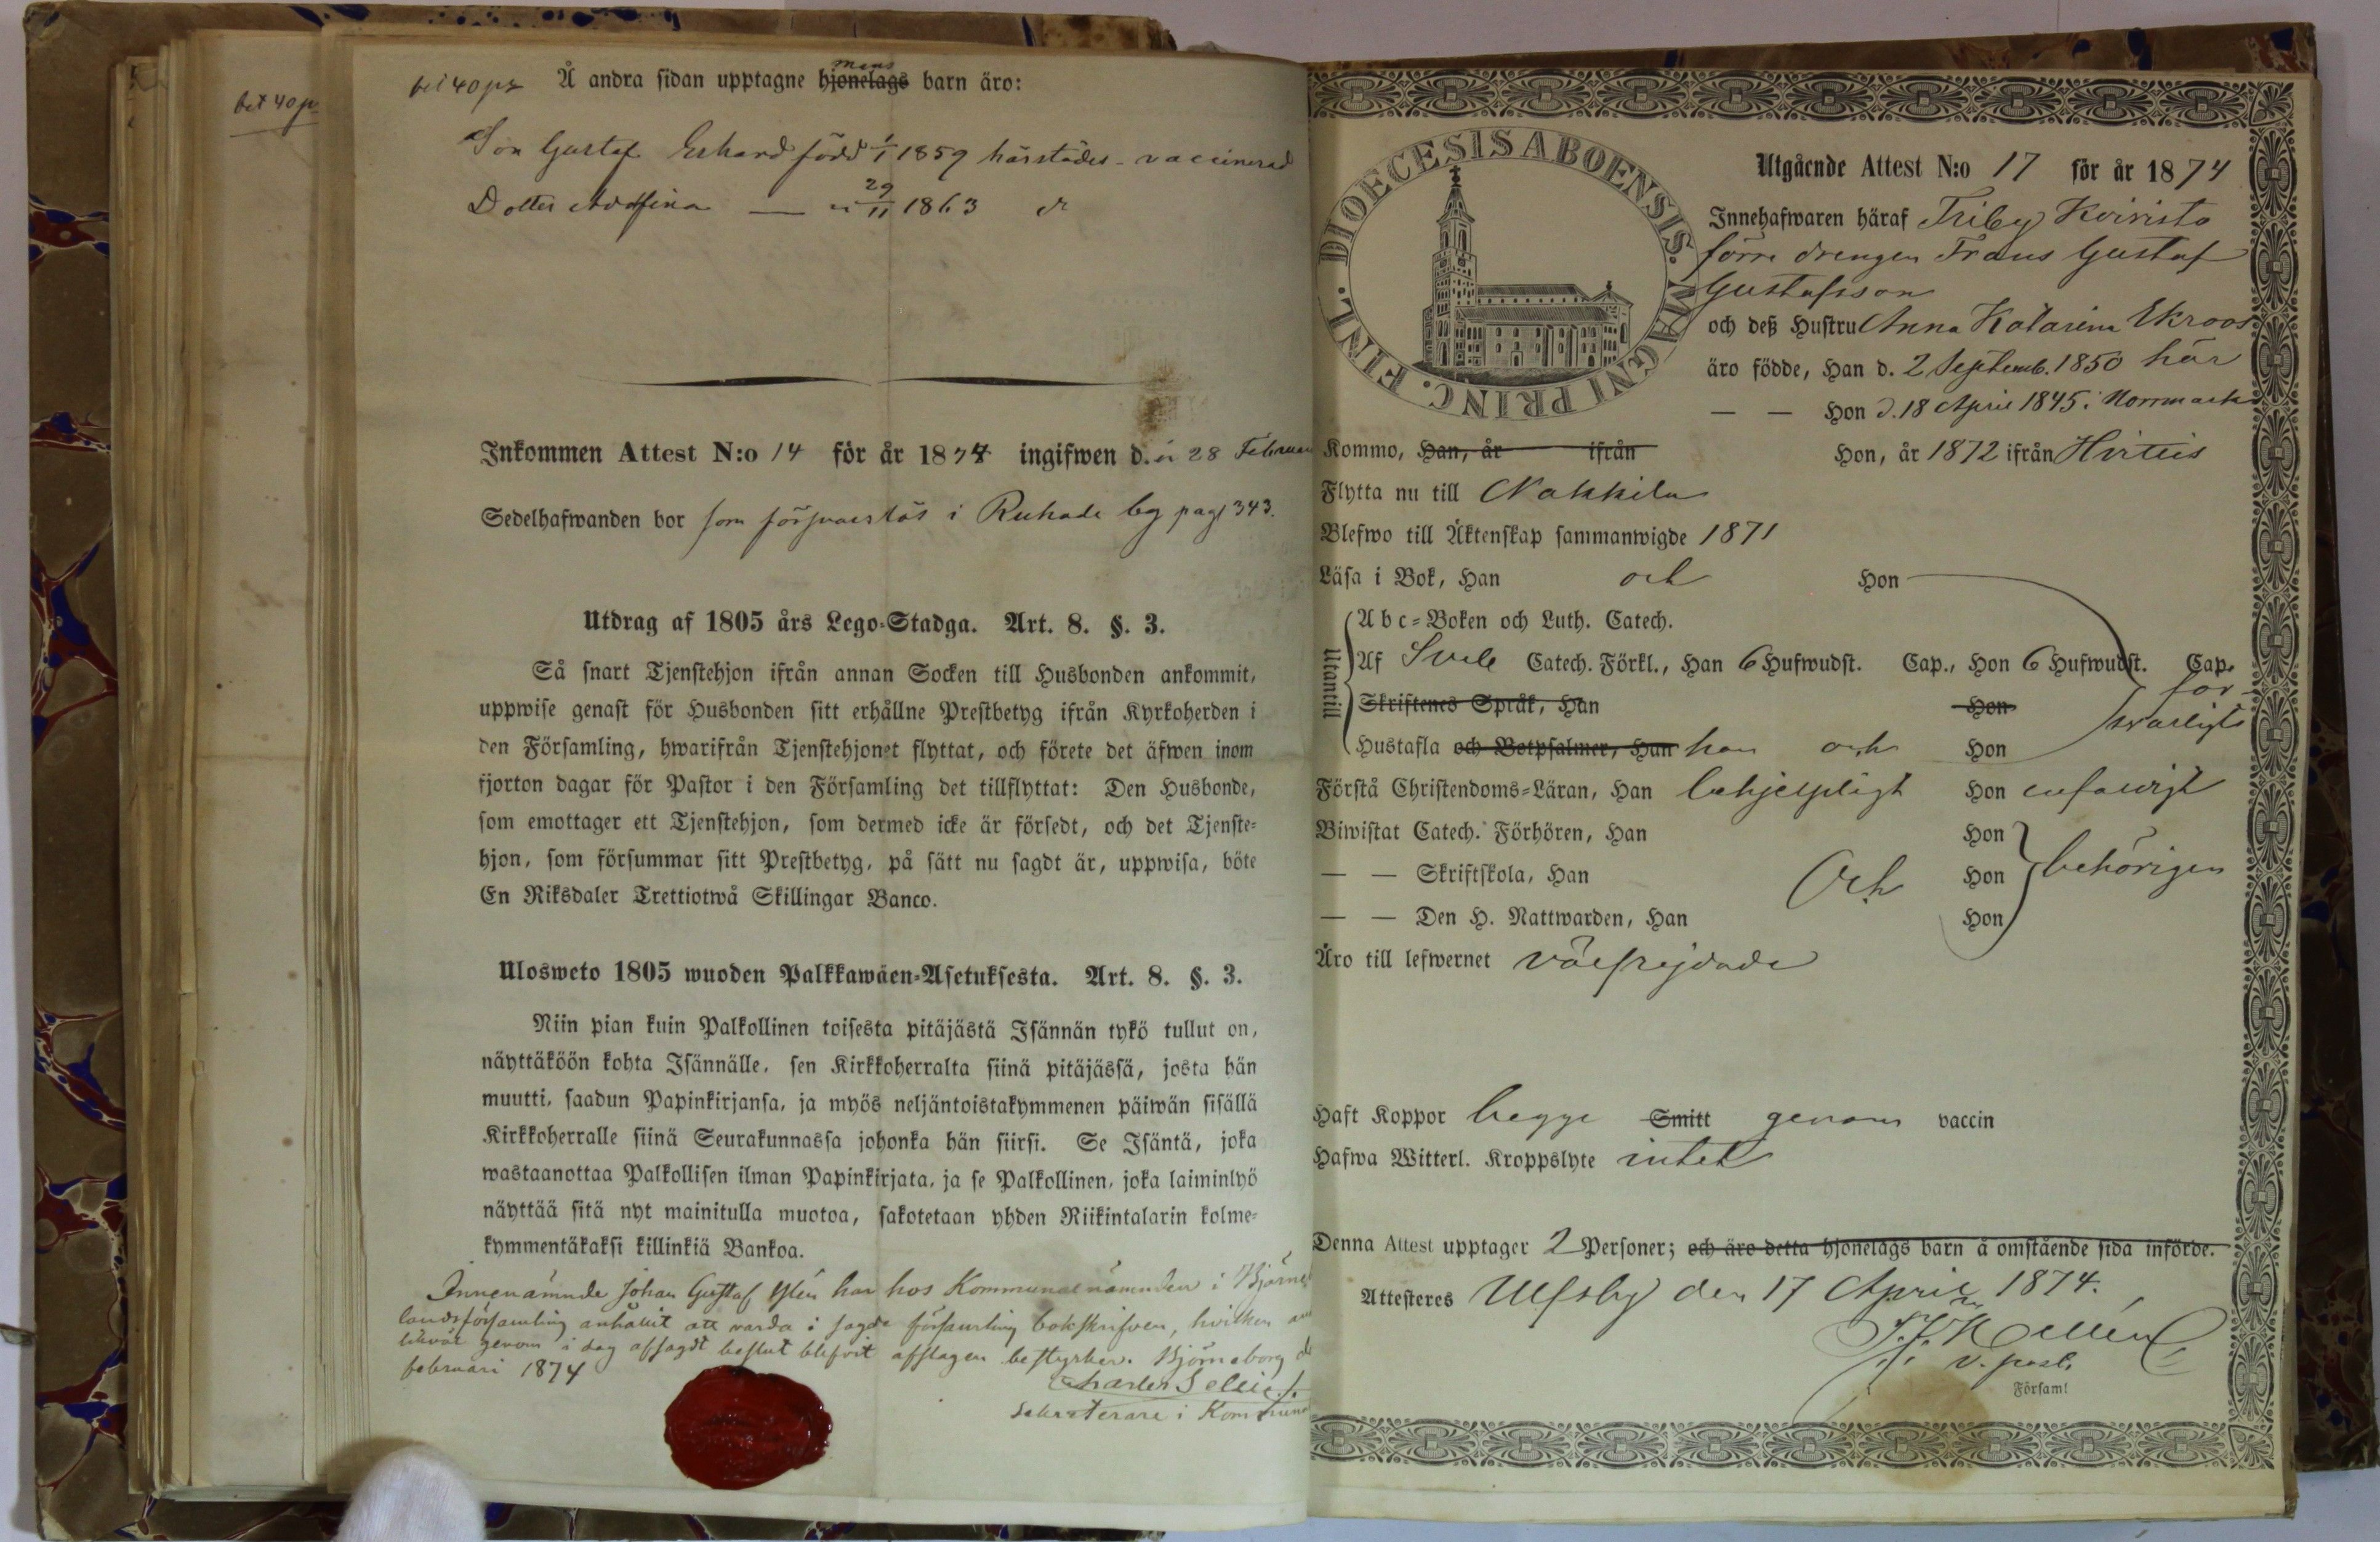 bet 40 p
bet 40 p
Å andra sidan upptagne hjonelags barn äro:
mans
Son Gustaf Erhard född 1/1 1859 härstädes - vaccinerad
Dotter Adolfina — " 29/11 1863 d
Inkommen Attest N:o 14 för år 1874 ingifwen d. 28 Februar
Sedelhafwanden bor som försvarslös i Ruhade by pag 343.
Utdrag af 1805 års Lego-Stadga. Art. 8. §. 3.
Så snart Tjenstehjon ifrån annan Socken till Husbonden ankommit,
uppwise genast för Husbonden sitt erhållne Prestbetyg ifrån Kyrkoherden i
den Församling, hwarifrån Tjenstehjonet flyttat, och förete det äfwen inom
fjorton dagar för Pastor i den Församling det tillflyttat: Den Husbonde,
som emottager ett Tjenstehjon, som dermed icke är försedt, och det Tjenste-
hjon, som försummar sitt Prestbetyg, på sätt nu sagdt är, uppwisa, böte
En Riksdaler Trettiotwå Skillingar Banco.
Ulosweto 1805 wuoden Palkkawäen-Asetuksesta. Art. 8. §. 3.
Niin pian kuin Palkollinen toisesta pitäjästä Isännän tykö tullut on,
näyttäköön kohta Isännälle, sen Kirkkoherralta siinä pitäjässä, josta hän
muutti, saadun Papinkirjansa, ja myös neljäntoistakymmenen päiwän sisällä
Kirkkoherralle siinä Seurakunnassa johonka hän siirsi. Se Isäntä, joka
wastaanottaa Palkollisen ilman Papinkirjata, ja se Palkollinen, joka laiminlyö
näyttää sitä nyt mainitulla muotoa, sakotetaan yhden Riikintalarin kolme-
kymmentäkaksi killinkiä Bankoa.
Innenämnde Johan Gustaf Ylén har hos Kommunalnämnden i Björne
landsförsamling anhållit att varda i sagde församling bokskrifven, hvilken an
likväl genom i dag afsagdt beslut blifvit afslagen bestyrker. Björneborg d
februari 1874
Charles Sellie
Sekreterare i Kommuna
DIOECESIS ABOENSIS. MAGNI PRINC. FINL.
Utgående Attest N:o 17 för år 1874
Innehafwaren häraf Friby Koivisto
förre drengen Frans Gustaf
Gustafsson
och deß Hustru Anna Katarina Ekroos
äro födde, Han d. 2 Septemb. 1850 här
— — Hon d. 18 April 1845 i Norrmark
Kommo, Han, år ifrån Hon, år 1872 ifrån Hvittis
Flytta nu till Nakkila
Blefwo till Äktenskap sammanwigde 1871
Läsa i Bok, Han och Hon
Utantill
Abc-Boken och Luth. Catech.
Af Sveb Catech. Förkl., Han 6 Hufwudst. Cap., Hon 6 Hufwudst. Cap.
Skriftenes Språk, Han Hon för-
svarligt
Hustafla och Botpsalmer, Han han och Hon
Förstå Christendoms-Läran, Han behjelpligt Hon enfaldigt
Biwistat Catech. Förhören, Han Hon
— — Skriftskola, Han Och Hon behörigen
— — Den H. Nattwarden, Han Hon
Äro till lefwernet välfrejdade
Haft Koppor begge Smitt genom vaccin
Hafwa Witterl. Kroppslyte intet
Denna Attest upptager 2 Personer; och äro detta hjonelags barn å omstående sida införde.
Attesteres Ulfsby den 17 April 1874.
v. past.
Församl